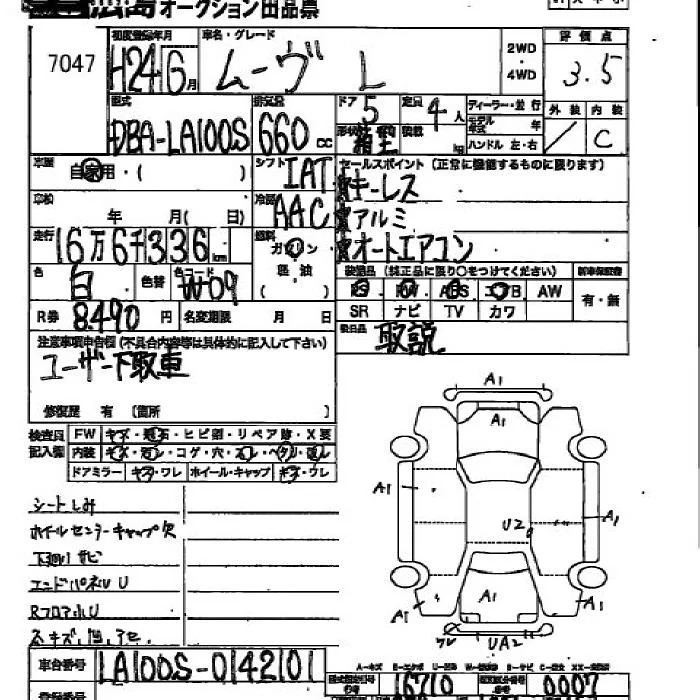 広島オークション出品票
7047
初度登録年月 車名・グレード
H24 6月 ムーヴ L
2WD・4WD
評価点
3.5
型式 排気量 ドア 定員 ディーラー・並行
DBA-LA100S 660cc 5 4人
モデル年式 年
ハンドル 左・右
外装 内装
/ C
車歴 自家用・( )
シフト IAT
セールスポイント (正常に機能するものに限ります)
キーレス
車検 年 月( 日)
冷房 AAC
アルミ
走行 16万6千336km
燃料 ガソリン 軽油 ( )
オートエアコン
色 白 色替 色コード W09
装備品 (純正品に限り○をつけてください) 新車保証書
PS PW ABS エアB AW 有・無
SR ナビ TV カワ
R券 8,490円 名変期限 月 日
取説
注意事項申告欄 (不具合内容等は具体的に記入して下さい)
ユーザー下取車
修復歴 有 [箇所 ]
検査員記入欄
FW キズ・飛石・ヒビ割・リペア跡・X要
内装 キズ・汚レ・コゲ・穴・スレ・ヘタリ・臭レ
ドアミラー キズ・ワレ ホイール・キャップ キズ・ワレ
シートしみ
ホイルセンターキャップ欠
下廻りサビ
エンドパネルU
RフロアホU
A1
A1
A1
A1
U2
A1
A1
A1
ワレ UA2
車台番号 LA100S-0142101
16710
0007